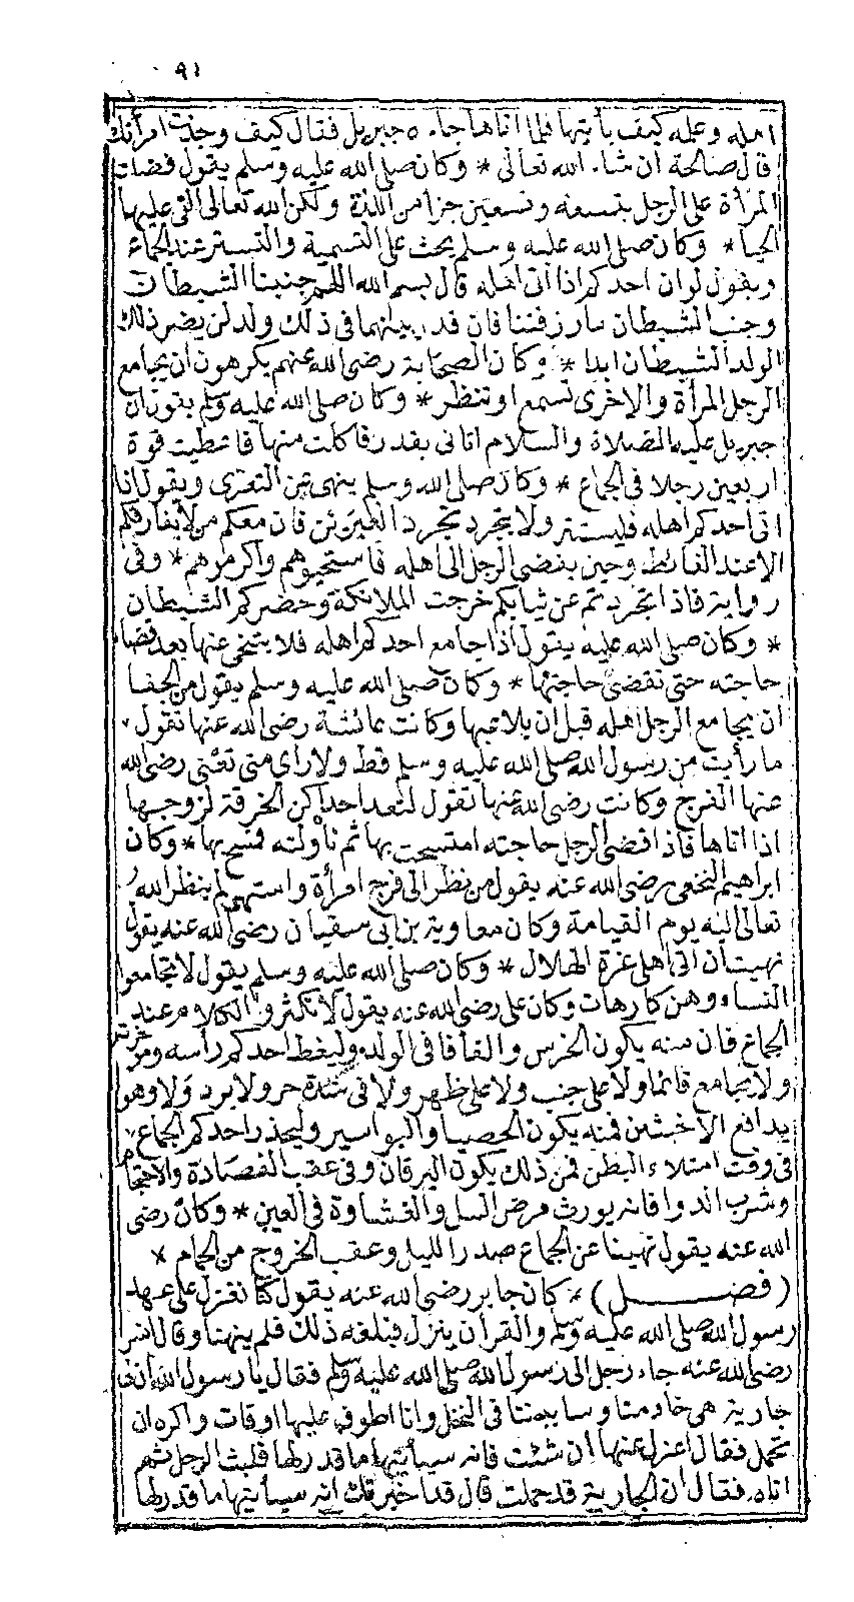 ٩١
اهله وعمله كيف يأتيها فلما اتاها جاءه جبريل فقال كيف وجدت امرأتك
قال صالحة ان شاء الله تعالى * وكان صلى الله عليه وسلم يقول فضلت
المرأة على الرجل بتسعة وتسعين جزأ من اللذة ولكن الله تعالى القى عليها
الحيا * وكان صلى الله عليه وسلم يحث على التسمية والتستر عند الجماع
ويقول لو ان احدكم اذا اتى اهله قال بسم الله اللهم جنبنا الشيطان
وجنب الشيطان ما رزقتنا فان قدر بينهما فى ذلك ولد لن يضر ذلك
الولد الشيطان ابدا * وكان الصحابة رضى الله عنهم يكرهون ان يجامع
الرجل المرأة والاخرى تسمع او تنظر * وكان صلى الله عليه وسلم يقول ان
جبريل عليه الصلاة والسلام اتانى بقدر فاكلت منها فاعطيت قوة
اربعين رجلا فى الجماع * وكان صلى الله وسلم ينهى عن التعرى ويقول اذا
اتى احدكم اهله فليستتر ولا يتجرد تجرد العيرين فان معكم من لا يفارقكم
الا عند الغائط وحين يفضى الرجل الى اهله فاستحيوهم واكرموهم * وفى
رواية فاذا تجردتم عن ثيابكم خرجت الملائكة وحضركم الشيطان
* وكان صلى الله عليه يقول اذا جامع احدكم اهله فلا يتنحى عنها بعد قضاء
حاجته حتى تقضى حاجتها * وكان صلى الله عليه وسلم يقول من الجفا
ان يجامع الرجل اهله قبل ان يلاعبها وكانت عائشة رضى الله عنها تقول
ما رأيت من رسول الله صلى الله عليه وسلم قط ولا راى منى تعنى رضى الله
عنها الفرج وكانت رضى الله عنها تقول لتعد احداكن الخرقة لزوجها
اذا اتاها فاذا قضى الرجل حاجته امتسحت بها ثم ناولته فمسح بها * وكان
ابراهيم النخعى رضى الله عنه يقول من نظر الى فرج امرأة واستهى لم ينظر الله
تعالى اليه يوم القيامة وكان معاوية بن ابى سفيان رضى الله عنه يقول
نهيت ان اتى اهلى غرة الهلال * وكان صلى الله عليه وسلم يقول لا تجامعوا
النساء وهن كارهات وكان على رضى الله عنه يقول لا تكثروا الكلام عند
الجماع فان منه يكون الخرس والفأفا فى الولد وليغط احدكم رأسه ومؤخرته
ولا يجامع قائما ولا على جنب ولا على ظهر ولا فى شدة حر ولا برد ولا وهو
يدافع الاخبثين فمنه يكون الحصا والبواسير وليحذر احدكم الجماع
فى وقت امتلاء البطن فمن ذلك يكون اليرقان وفى عقب الفصادة والاحتجام
وشرب الدوا فانه يورث مرض السل والغشاوة فى العين * وكان رضى
الله عنه يقول نهينا عن الجماع صدر الليل وعقب الخروج من الحمام *
(فصل) * كان جابر رضى الله عنه يقول كنا نعزل على عهد
رسول الله صلى الله عليه وسلم والقرأن ينزل فبلغه ذلك فلم ينهنا وقال انس
رضى الله عنه جاء رجل الى رسول الله صلى الله عليه وسلم فقال يا رسول الله ان لى
جارية هى خادمتنا وسايبتنا فى النخل وانا اطوف عليها اوقات واكره ان
تحمل فقال اعزل عنها ان شئت فانه سيأتيها ما قدر لها فلبث الرجل ثم
اتاه فقال ان الجارية قد حملت قال قد اخبرتك انه سيأتيها ما قدر لها